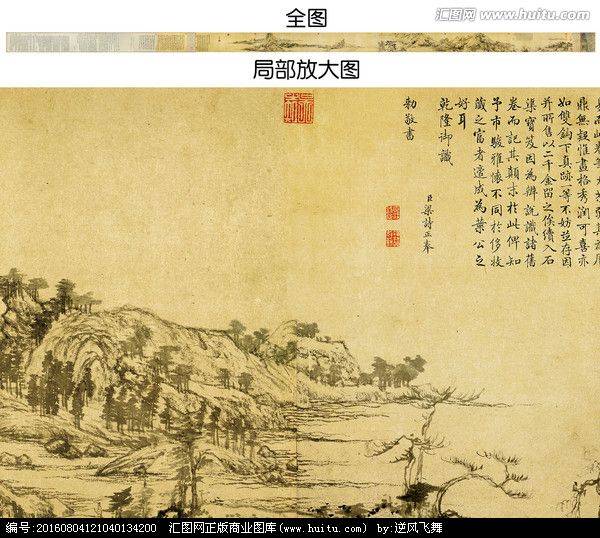 全图
汇图网
www.huitu.com
局部放大图
鼎無疑惟畫格秀潤可喜亦
如雙鈎下真跡一等不妨並存因
并所售以二千金留之俟續入石
渠寶笈因為辨說識諸舊
卷而記其顛末於此俾知
予市駿雅懷不同於侈收
藏之富者遂成為葉公之
好耳
乾隆御識
臣梁詩正奉
勅敬書
编号:20160804121040134200 汇图网正版商业图库(www.huitu.com) by:逆风飞舞